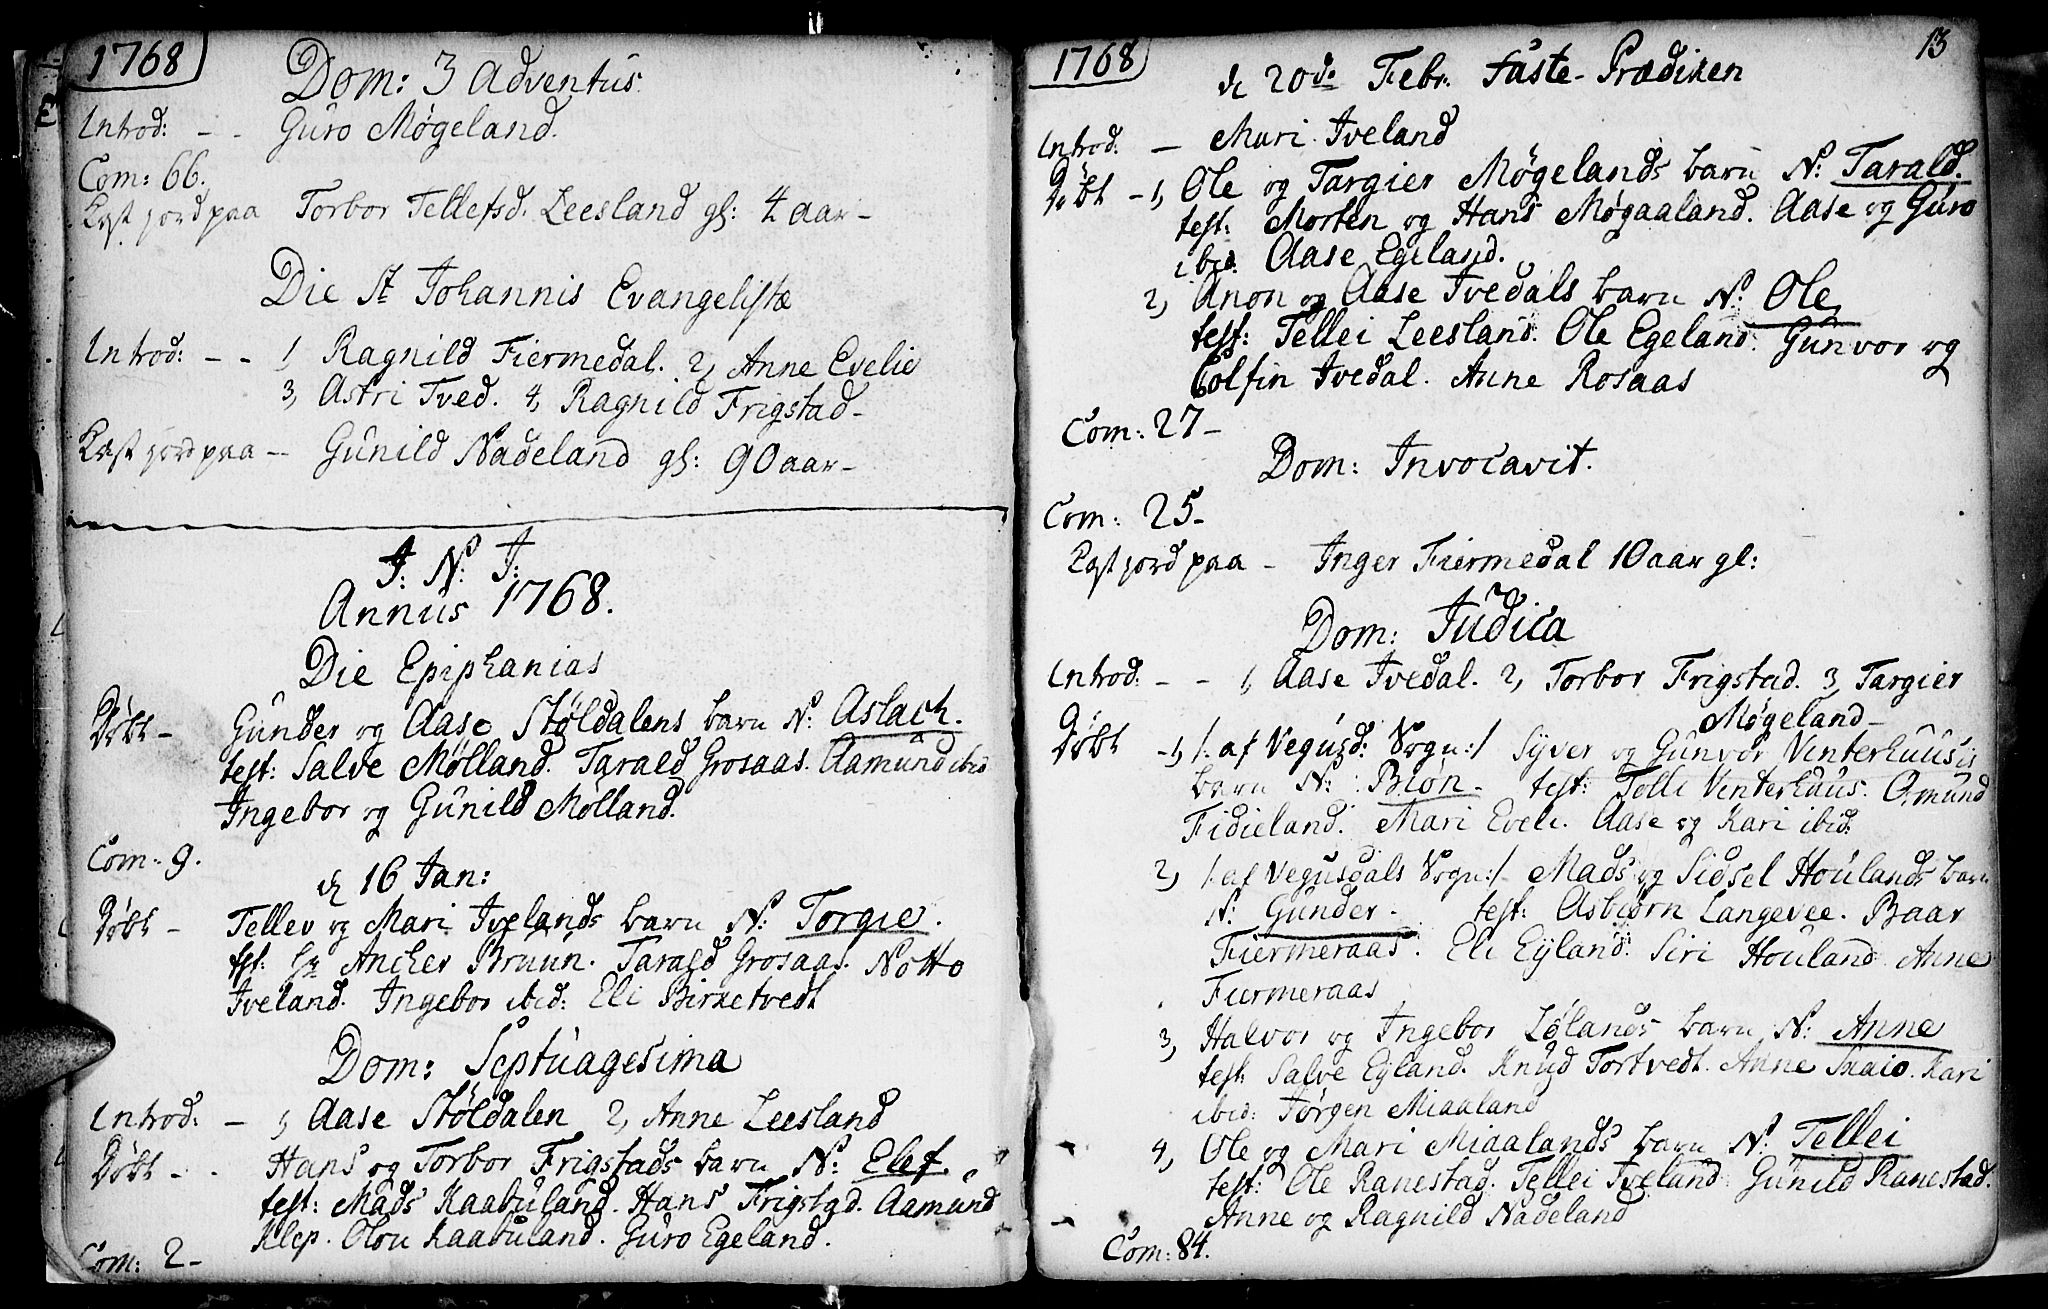 1768
Dom: 3 Adventus
Introd: - - Guro Møgeland.
Com: 66.
Kast jord paa Torbor Tellefsd. Leesland gl: 4 aar -
Die St Johannis Evangelistæ
Introd: - - 1 Ragnild Fiermedal. 2, Anne Evelie
3, Astri Tved. 4, Ragnild Frigstad -
Kast jord paa -- Gunild Nadeland gl: 90 aar -
J: N: J:
Annus 1768.
Die Epiphanias
Døbt - Gunder og Aase Støldalens barn N: Aslach.
test: Salve Mølland. Tarald Grosaas. Aamund ibid
Ingebor og Gunild Mølland.
Com: 9.
d 16 Jan:
Døbt - Tellev og Mari Ivelands barn N: Torgie.
tst: Hr Ancher Bruun. Tarald Grosaas. Notto
Iveland. Ingebor ibid: Eli Birketvedt
Dom: Septuagesima
Introd: - 1, Aase Støldalen 2, Anne Leesland
Døbt - - Hans og Torbor Frigstads barn N: Elef.
test: Mads Kaabuland. Hans Frigstad. Aamund
Klep. Olou Kaabuland. Guro Egeland.
Com: 2 -
1768
13
d 20de Febr. Faste-Prædiken
Introd: - Mari Iveland
Døbt - 1, Ole og Targier Møgelands barn N: Tarald.
test: Morten og Hans Møgaaland. Aase og Guro
ibid. Aase Egeland.
2, Anon og Aase Ivedals barn N: Ole
test: Tellei Leesland. Ole Egeland. Gunvor og
Colfin Ivedal. Anne Rosaas
Com: 27 -
Dom: Invocavit.
Com: 25 -
Kast jord paa - Inger Fiermedal 10 aar gl:
Dom: Judica
Introd: - - 1, Aase Ivedal. 2, Torbor Frigstad. 3, Targier
Møgeland -
Døbt - 1, /: af Vegusd: Sogn :/ Syver og Gunvor Vinterhuus's
barn N: Biôn - test: Telli Vinterhuus. Omund
Fidieland. Mari Evele. Aase og Kari ibid.
2, /: af Vegusdals Sogn :/ Mads og Sidsel Houlands barn
N: Gunder - test: Asbiørn Langevee. Baar
Fiermeraas. Eli Eyland. Siri Houland Anne
Fiermeraas
3, Halvor og Ingebor Lølands barn N: Anne
test: Salve Eyland. Knud Tortvedt. Anne Skaio. Kari
ibid: Jørgen Miaaland
4, Ole og Mari Miaalands barn N: Tellei
test: Ole Ranestad. Tellei Iveland Gunild Ranestad.
Anne og Ragnild Nadeland
Com: 84.